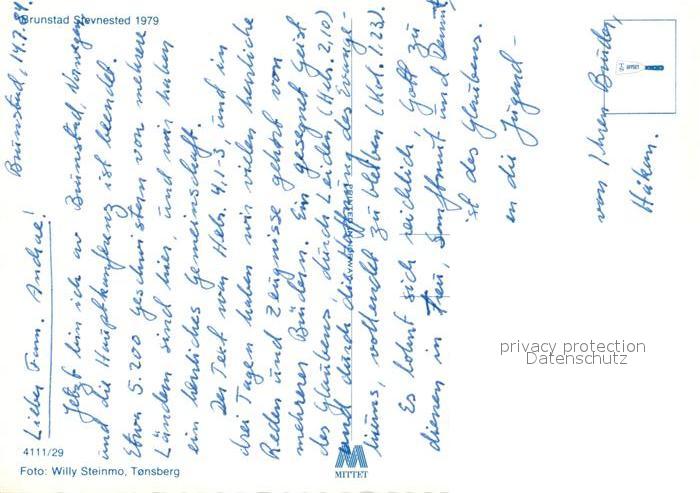 Brunstad Stevnested 1979
Brunstad, 14.7.84.
Lieber Fam. Andrae!
Jetzt bin ich av Brunstad, Norwegen
und die Hauptkonferanz ist beendet.
Etwa 5.200 Geschwistern von mehrere
Ländern sind hier, und wir haben
ein herrliches Gemeinschaft.
Der Text war Hebr. 4,1-3, und in
drei Tagen haben wir vielen herrliche
Reden und Zeugnisse gehört von
mehrerer Brüdern. Ein gesegnet Geist
des Glaubens, durch Leiden (Heb. 2,10)
und durch die Hoffnung des Evange-
liums, vollendet zu bleiben (Kol. 1.23).
Es lohnt sich reichlich, Gott zu
dienen in Treu, Sanftmut und Demut
ist des Glaubens.
en die Jugend-
von Ihren Bruder,
Håkon.
4111/29
Foto: Willy Steinmo, Tønsberg
MITTET
privacy protection
Datenschutz